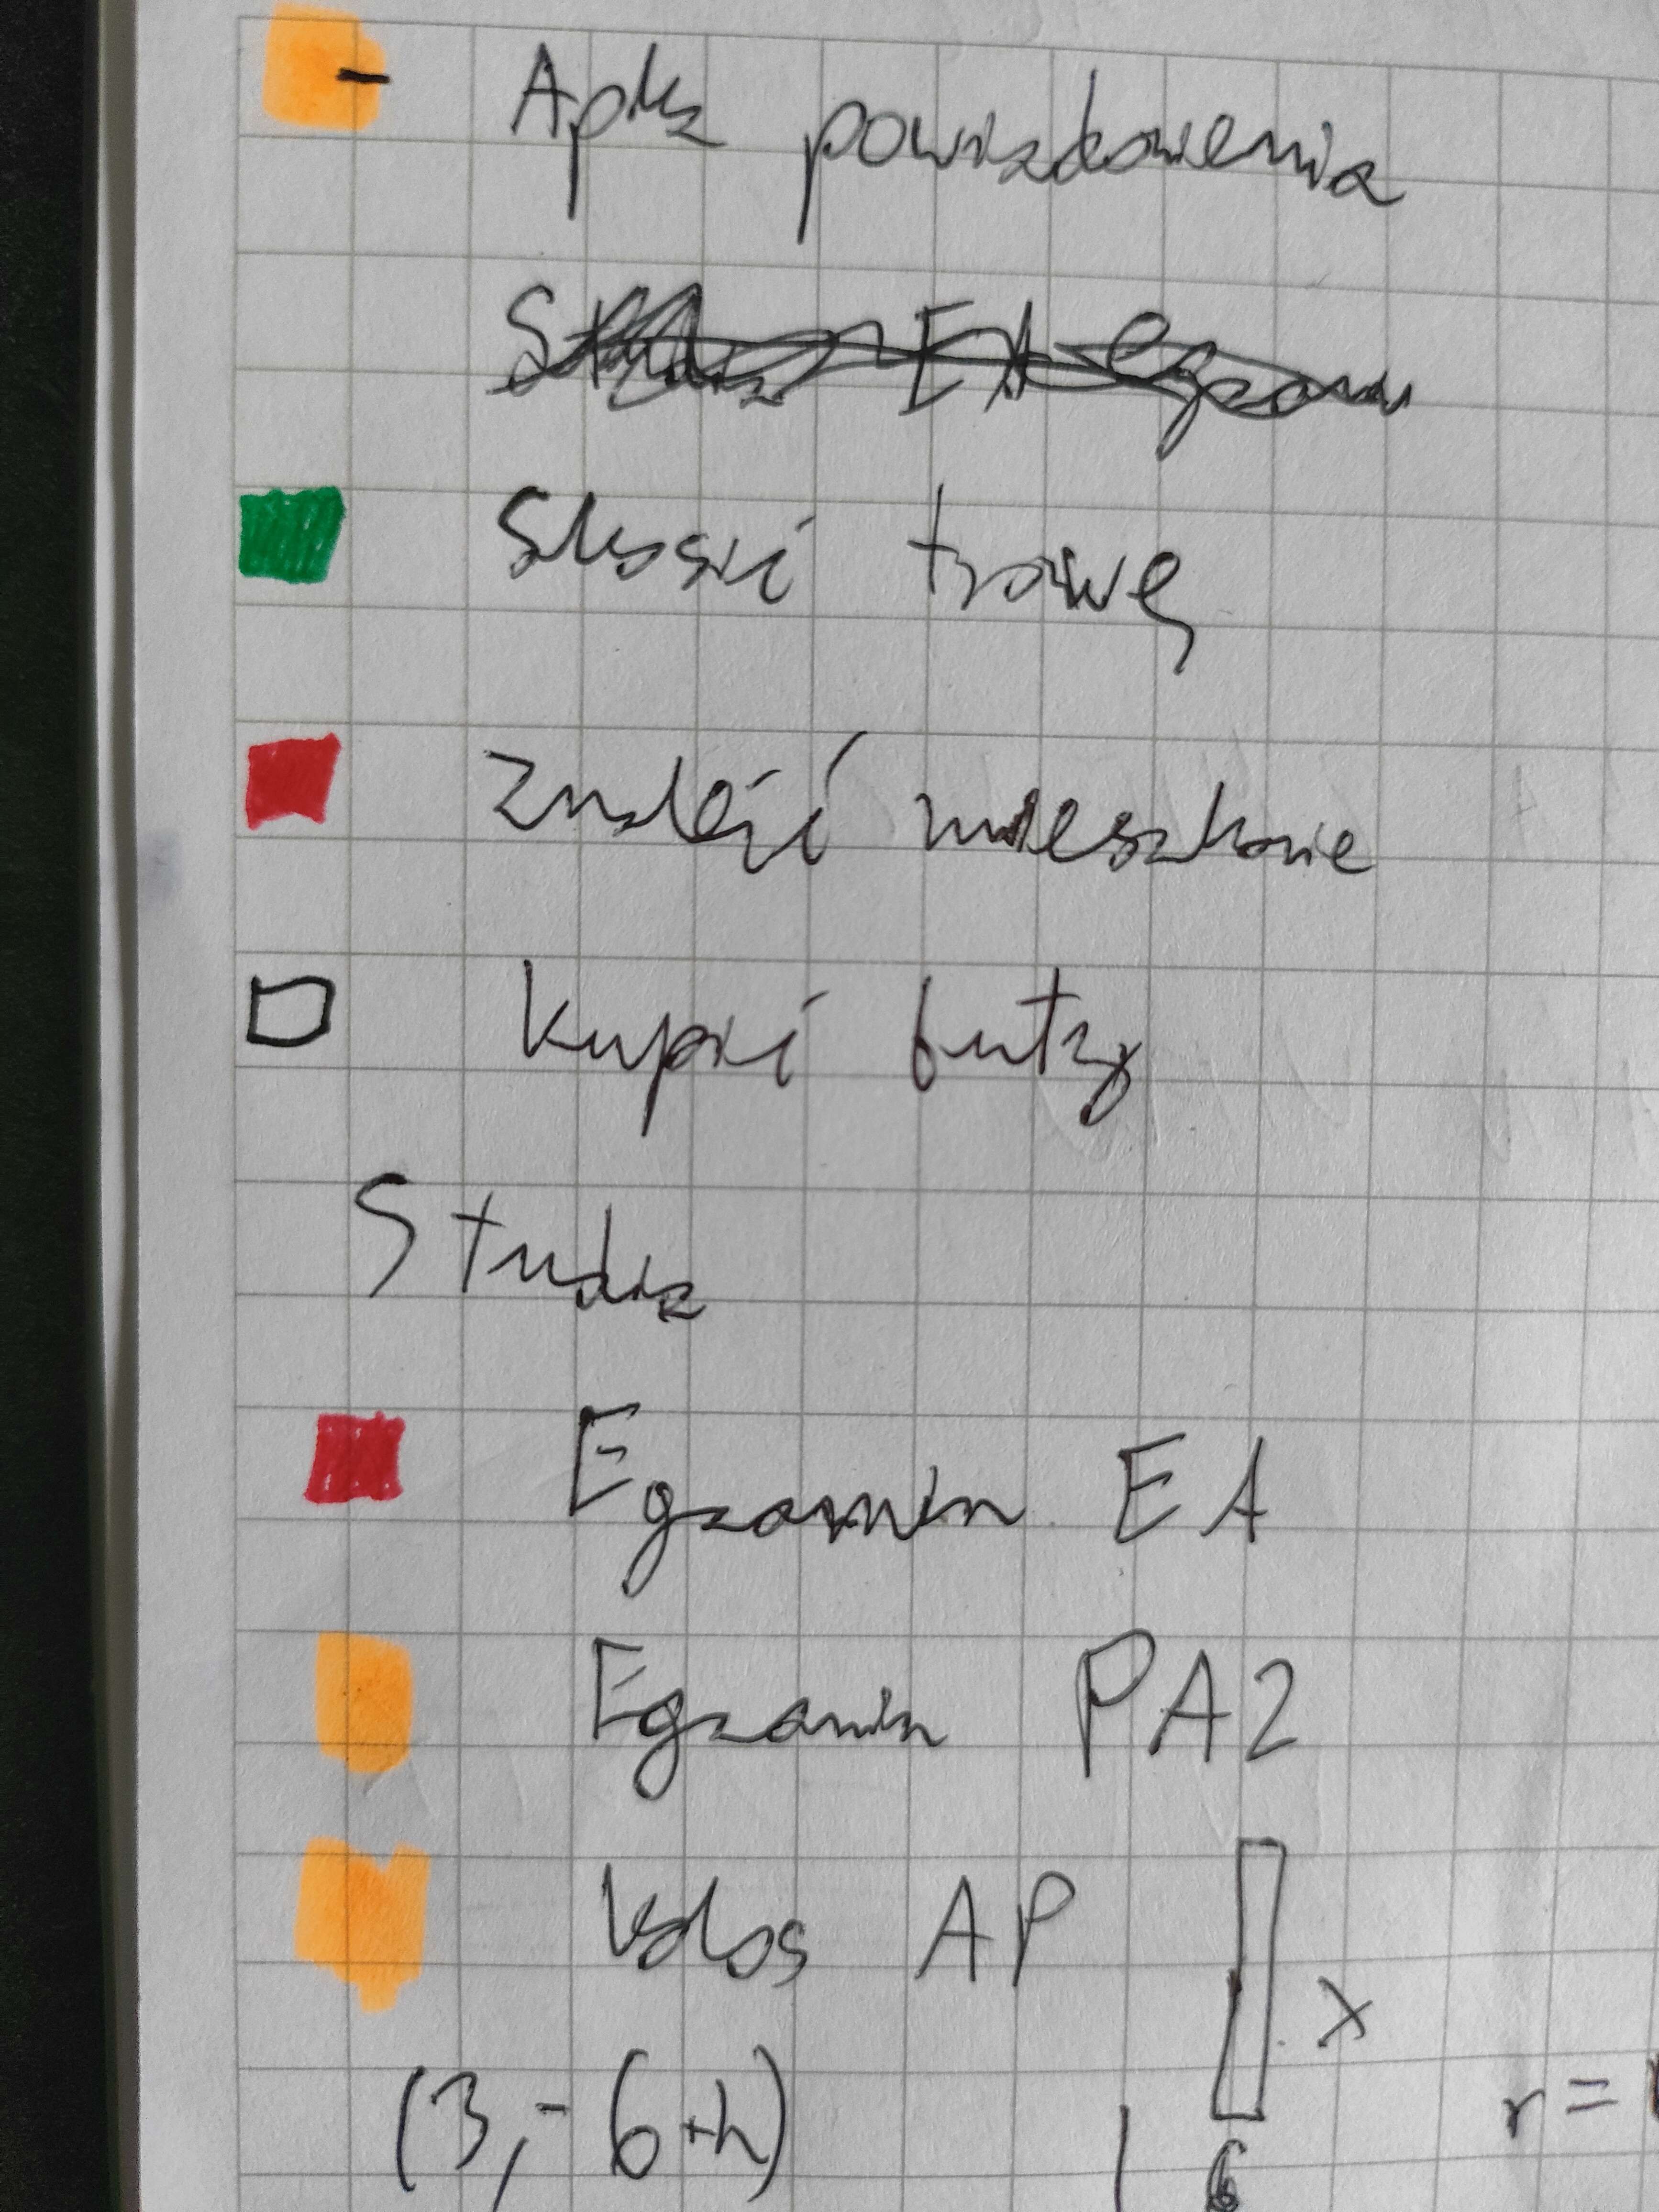 Apka powiadomienia
Studia EA egzam
Skosić trawę
Znaleźć mieszkanie
Kupić buty
Studia
Egzamin EA
Egzamin PA2
Kolos AP
x
(3, -6+h)
r =
6